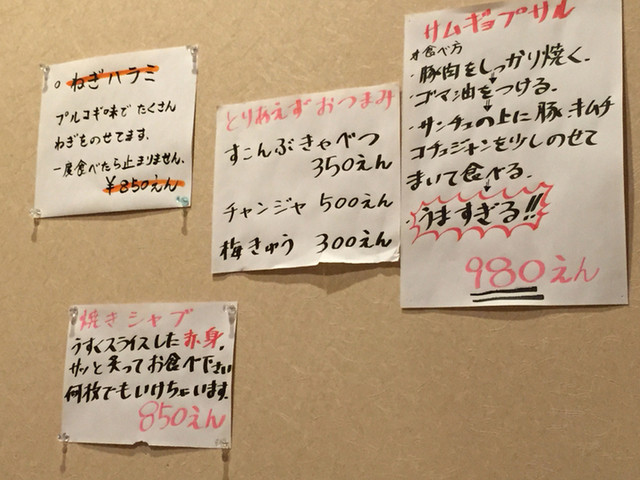 。ねぎハラミ
プルコギ味で たくさん
ねぎをのせてます。
一度食べたら止まりません。
¥850えん
とりあえず おつまみ
すこんぶきゃべつ
350えん
チャンジャ 500えん
梅きゅう 300えん
サムギョプサル
食べ方
・豚肉をしっかり焼く。
・ゴマ油をつける。
・サンチュの上に豚 キムチ
コチュジャンを少しのせて
まいて食べる。
・うますぎる!!
980えん
焼きシャブ
うすくスライスした赤身。
サッと炙ってお食べ下さい
何枚でもいけちゃいます。
850えん